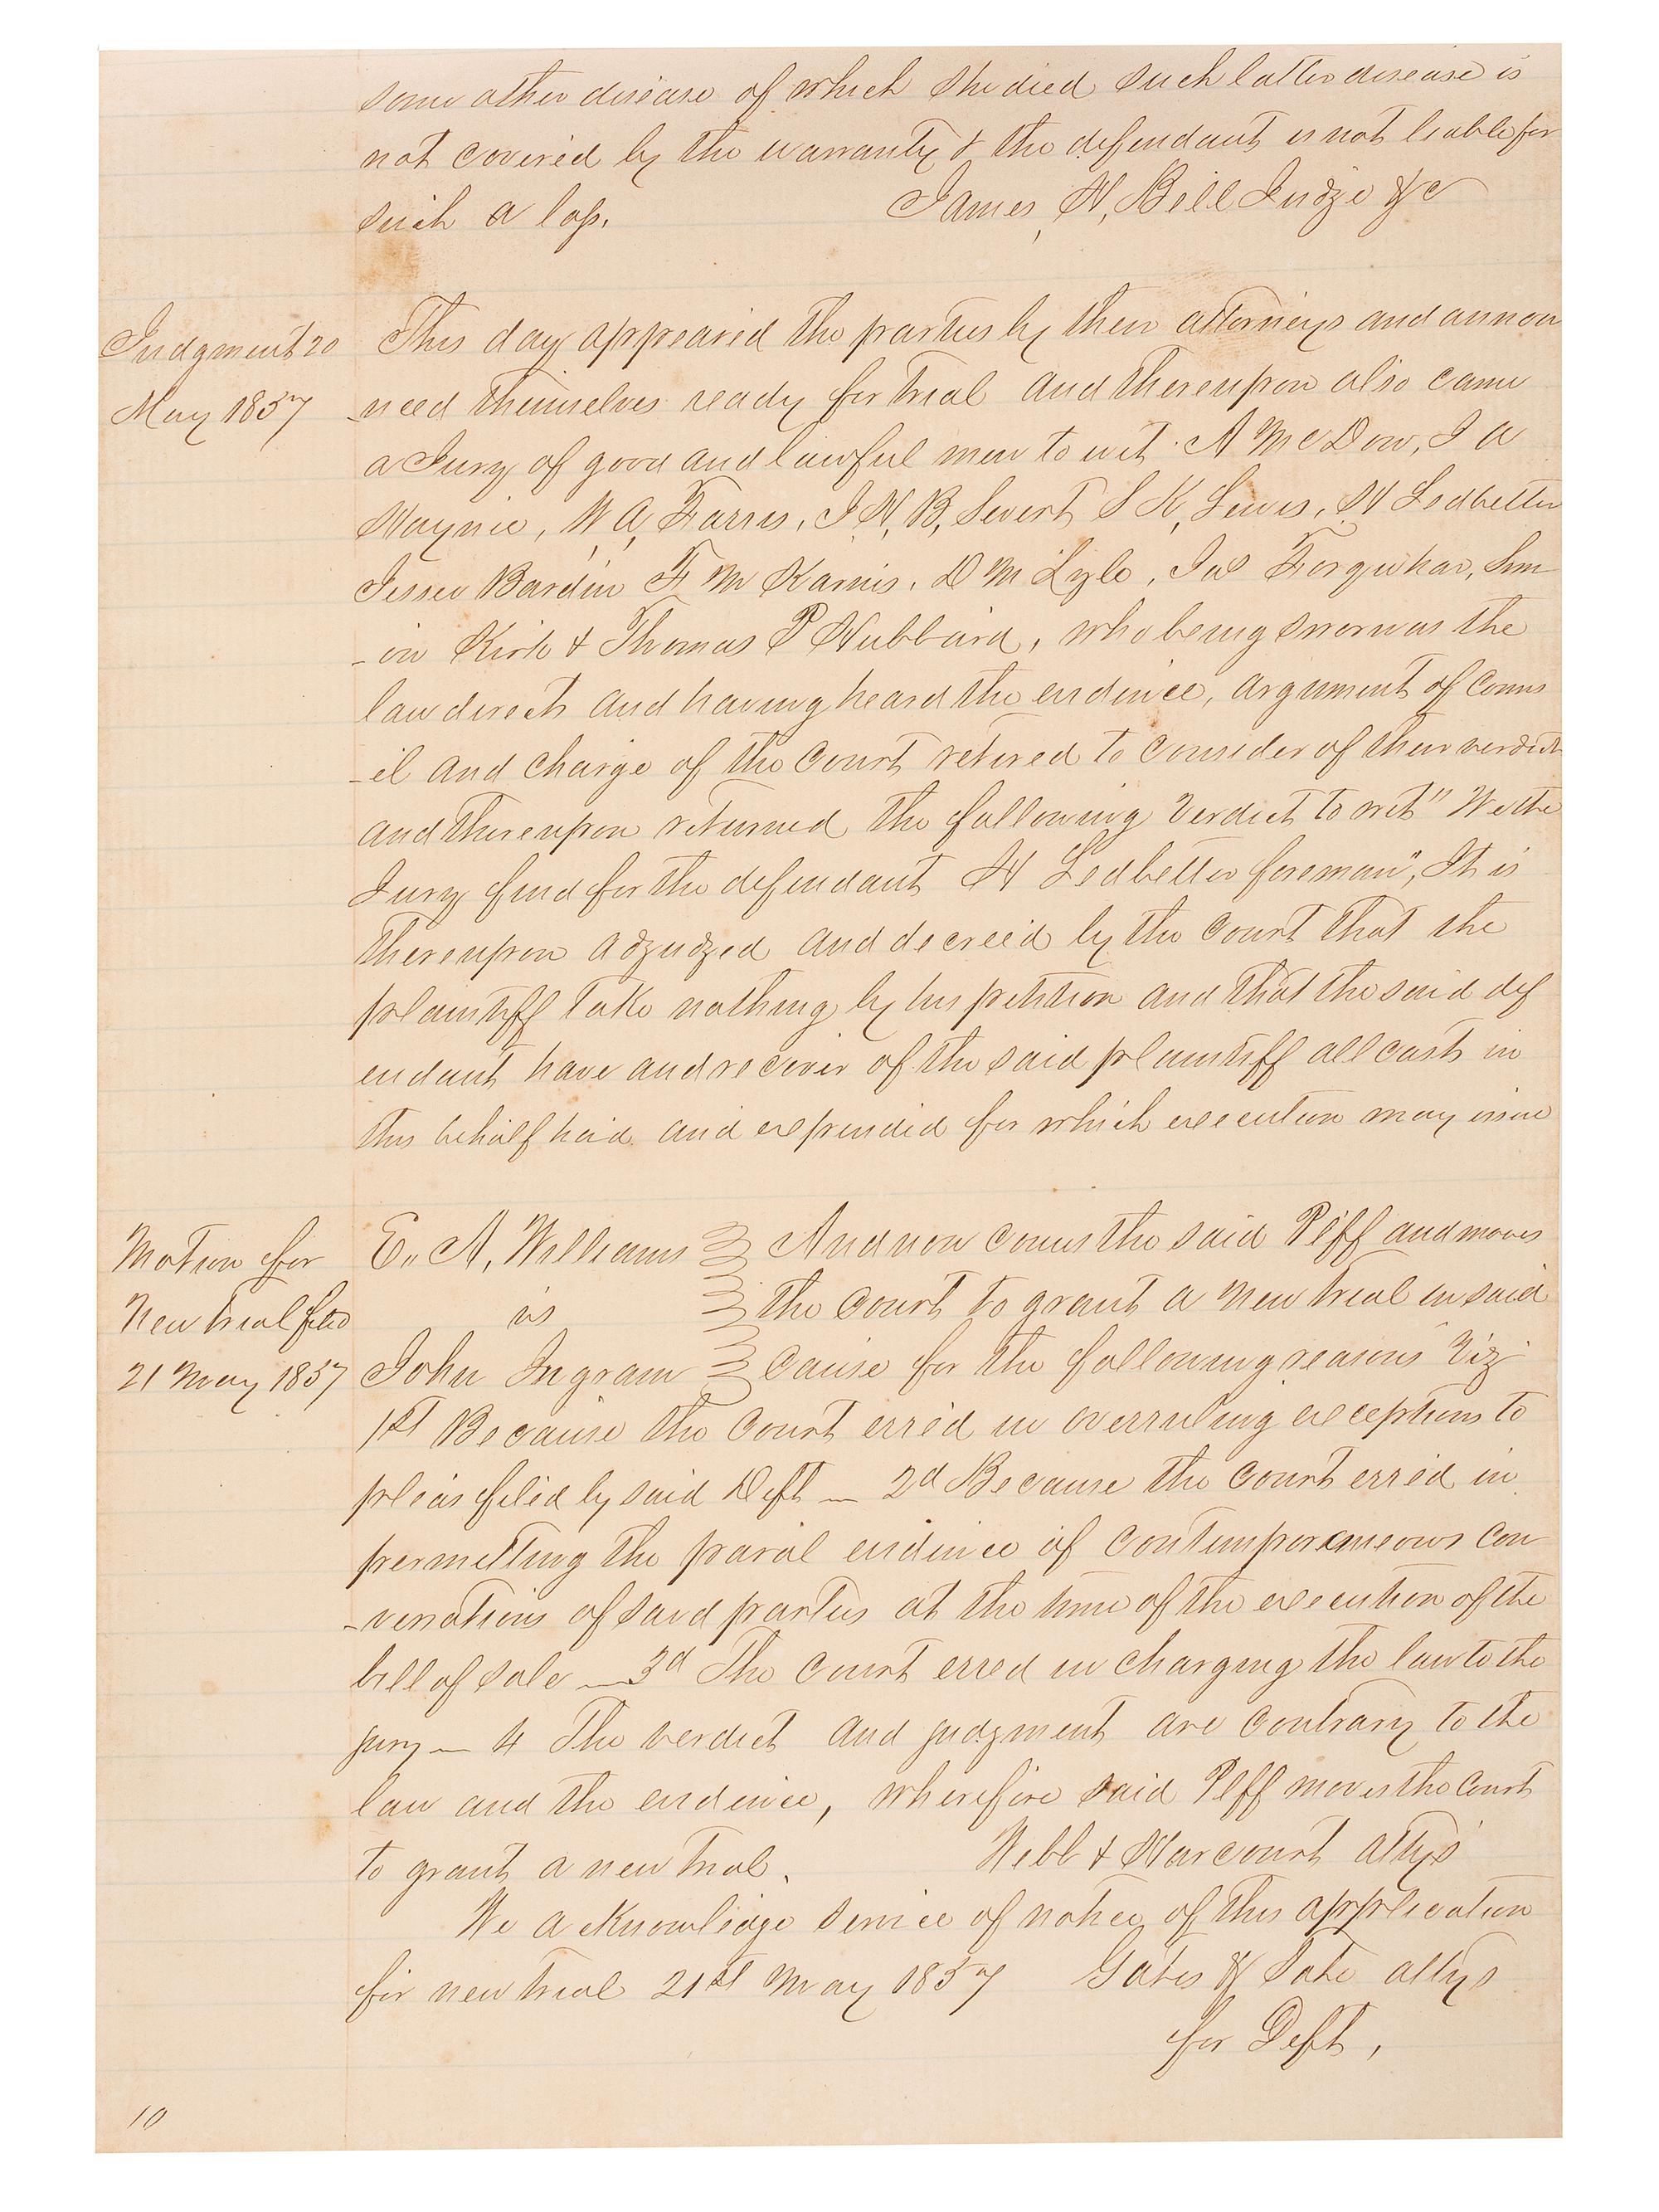 some other disease of which she died such latter disease is
not covered by the warranty & the defendant is not liable for
such a loss.
James, H, Bell Judge &c
Judgment 20
May 1857
This day appeared the parties by their attorneys and annou
nced themselves ready for trial and thereupon also came
a Jury of good and lawful men to wit. A McDow, J A
Haynie, W A, Farris, J, H, B, Severt S K, Lewis, H Ledbetter
Jesse Bardin F M Karnis, D M Lyle, Jas Forguhar,
in Kirk & Thomas P Hubbard, who being sworn as the
law directs and having heard the evidence, argument of Couns
-el and charge of the Court retired to consider of their verdict
and thereupon returned the following verdict to wit" We the
Jury find for the defendant H Ledbetter foreman", It is
thereupon adjudged and decreed by the Court that the
plaintiff take nothing by his petition and that the said def
endant have and recover of the said plaintiff all costs in
this behalf had and expended for which execution may issue
Motion for
New trial filed
21 May 1857
E,, A, Williams And now comes the said Plff and moves
vs the Court to grant a new trial in said
John Ingram Cause for the following reasons Viz
1st Because the Court erred in overruling exceptions to
pleas filed by said Deft — 2d Because the Court erred in
permitting the parol evidence of contemporaneous con
-versations of said parties at the time of the execution of the
bill of sale — 3d The Court erred in charging the law to the
jury — 4 The verdict and judgment are contrary to the
law and the evidence, wherefore said Plff moves the Court
to grant a new trial.
Webb & Harcourt attys
We acknowledge service of notice of this application
for new trial 21st May 1857 Gates & Tate attys
for Deft,
10